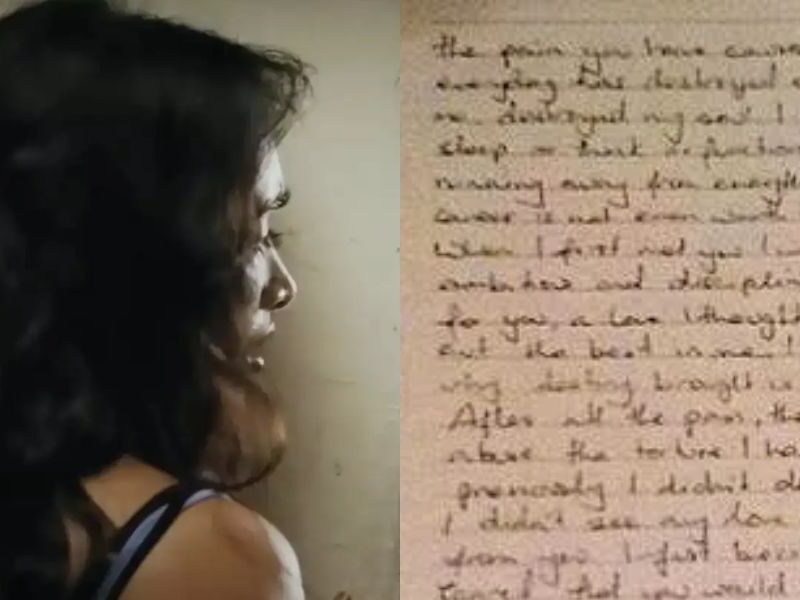 the pain you have cause
everyday have destroyed
me, destroyed my soul I
sleep or think or function
running away from everyth
career is not even worth
When I first met you I w
ambition and discipline
for you, a love I thought
out the best in me. I
why destiny brought us
After all the pain, the
abuse the torture I ha
previously I didn't de
I didn't see any love
from you I just beca
scared that you would